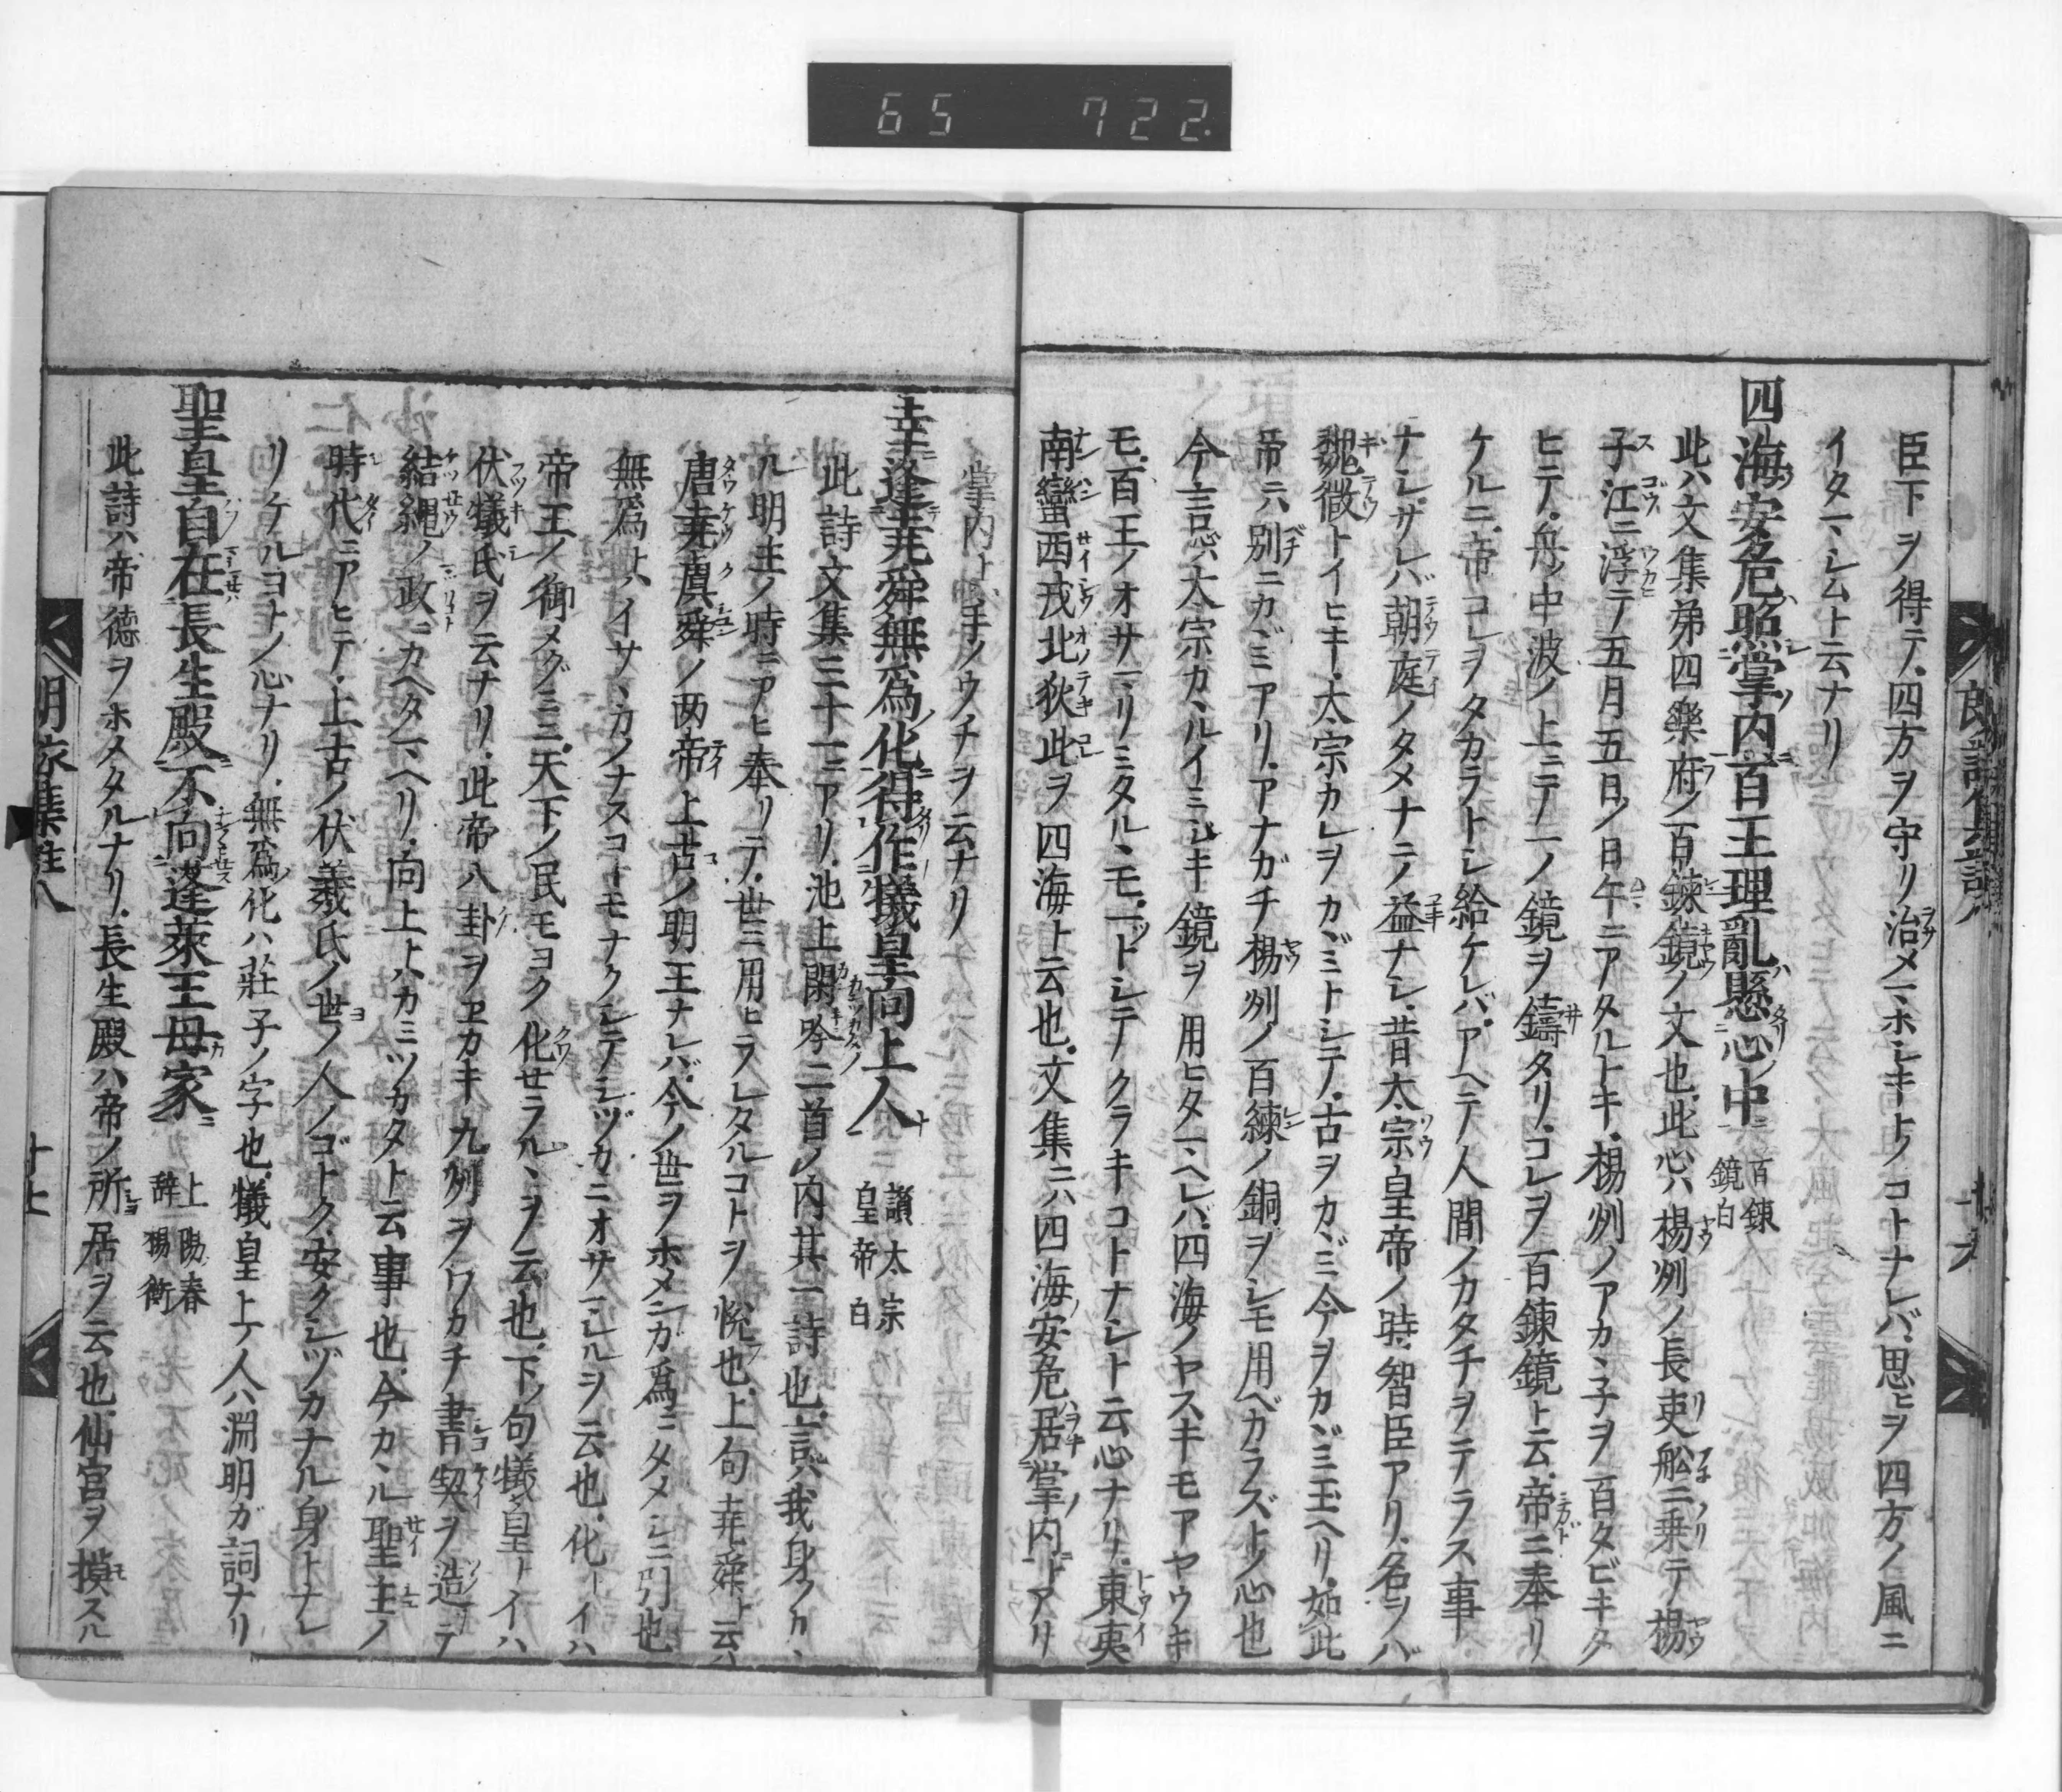 65 722.
臣下ヲ得テ四方ヲ守リ治メマホシキトノコトナレバ思ヒヲ四方ノ風ニ
イタマシムト云ナリ
四海安危照掌内百王理亂懸心中 百錬鏡白
此ハ文集第四樂府ノ百錬鏡ノ文也此心ハ楊州ノ長吏舩ニ乗テ楊
子江ニ浮テ五月五日ノ日午ニアタルトキ楊州ノアカヾ子ヲ百タビキタ
ヒテ舟ノ中波ノ上ニテ一ノ鏡ヲ鑄タリコレヲ百錬鏡ト云帝ニ奉リ
ケルニ帝コレヲタカラトシ給ケレバアヘテ人間ノカタチヲテラス事
ナシサレバ朝庭ノタメナニノ益ナシ昔太宗皇帝ノ時智臣アリ名ヲバ
魏徴トイヒキ太宗カレヲカヾミトシテ古ヲカヾミ今ヲカヾミ玉ヘリ如此
帝ニハ別ニカヾミアリアナガチ楊州ノ百練ノ銅ヲシモ用ベカラズトノ心也
今言心ハ太宗カヽルイミジキ鏡ヲ用ヒタマヘレバ四海ノヤスキモアヤウキ
モ百王ノオサマリミタルヽモ一ットシテクラキコトナシト云心ナリ東夷
南蠻西戎北狄此ヲ四海ト云也文集ニハ四海ノ安危居掌内トアリ
掌内トハ手ノウチヲ云ナリ
幸逢堯舜無為化得作犧皇向上人 讃太宗皇帝白
此詩文集三十一ニアリ池上閑吟二首ノ内其一詩也言ハ我身カヽ
ル明主ノ時ニアヒ奉リテ世ニ用ヒラレタルコトヲ悦也上句堯舜ト云ハ
唐堯虞舜ノ两帝上古ノ明王ナレバ今ノ世ヲホメンカ爲ニタメシニ引也
無爲トハイサヽカノナスコトモナクシテシヅカニオサマレルヲ云也化トイハ
帝王ノ御メグミニ天下ノ民モヨク化セラルヽヲ云也下ノ句犧皇トイハ
伏犧氏ヲ云ナリ此帝八卦ヲヱカキ九州ヲワカチ書契ヲ造テ
結縄ノ政ニカヘタマヘリ向上トハカミツカタト云事也今カヽル聖主ノ
時代ニアヒテ上古ノ伏羲氏ノ世ノ人ノゴトク安クシヅカナル身トナレ
リケルヨナノ心ナリ無爲ノ化ハ莊子ノ字也犧皇上ノ人ハ淵明ガ詞ナリ
聖皇自在長生殿不向蓬萊王母家 上陽春辞楊衡
此詩ハ帝徳ヲホメタルナリ長生殿ハ帝ノ所居ヲ云也仙宮ヲ摸スル